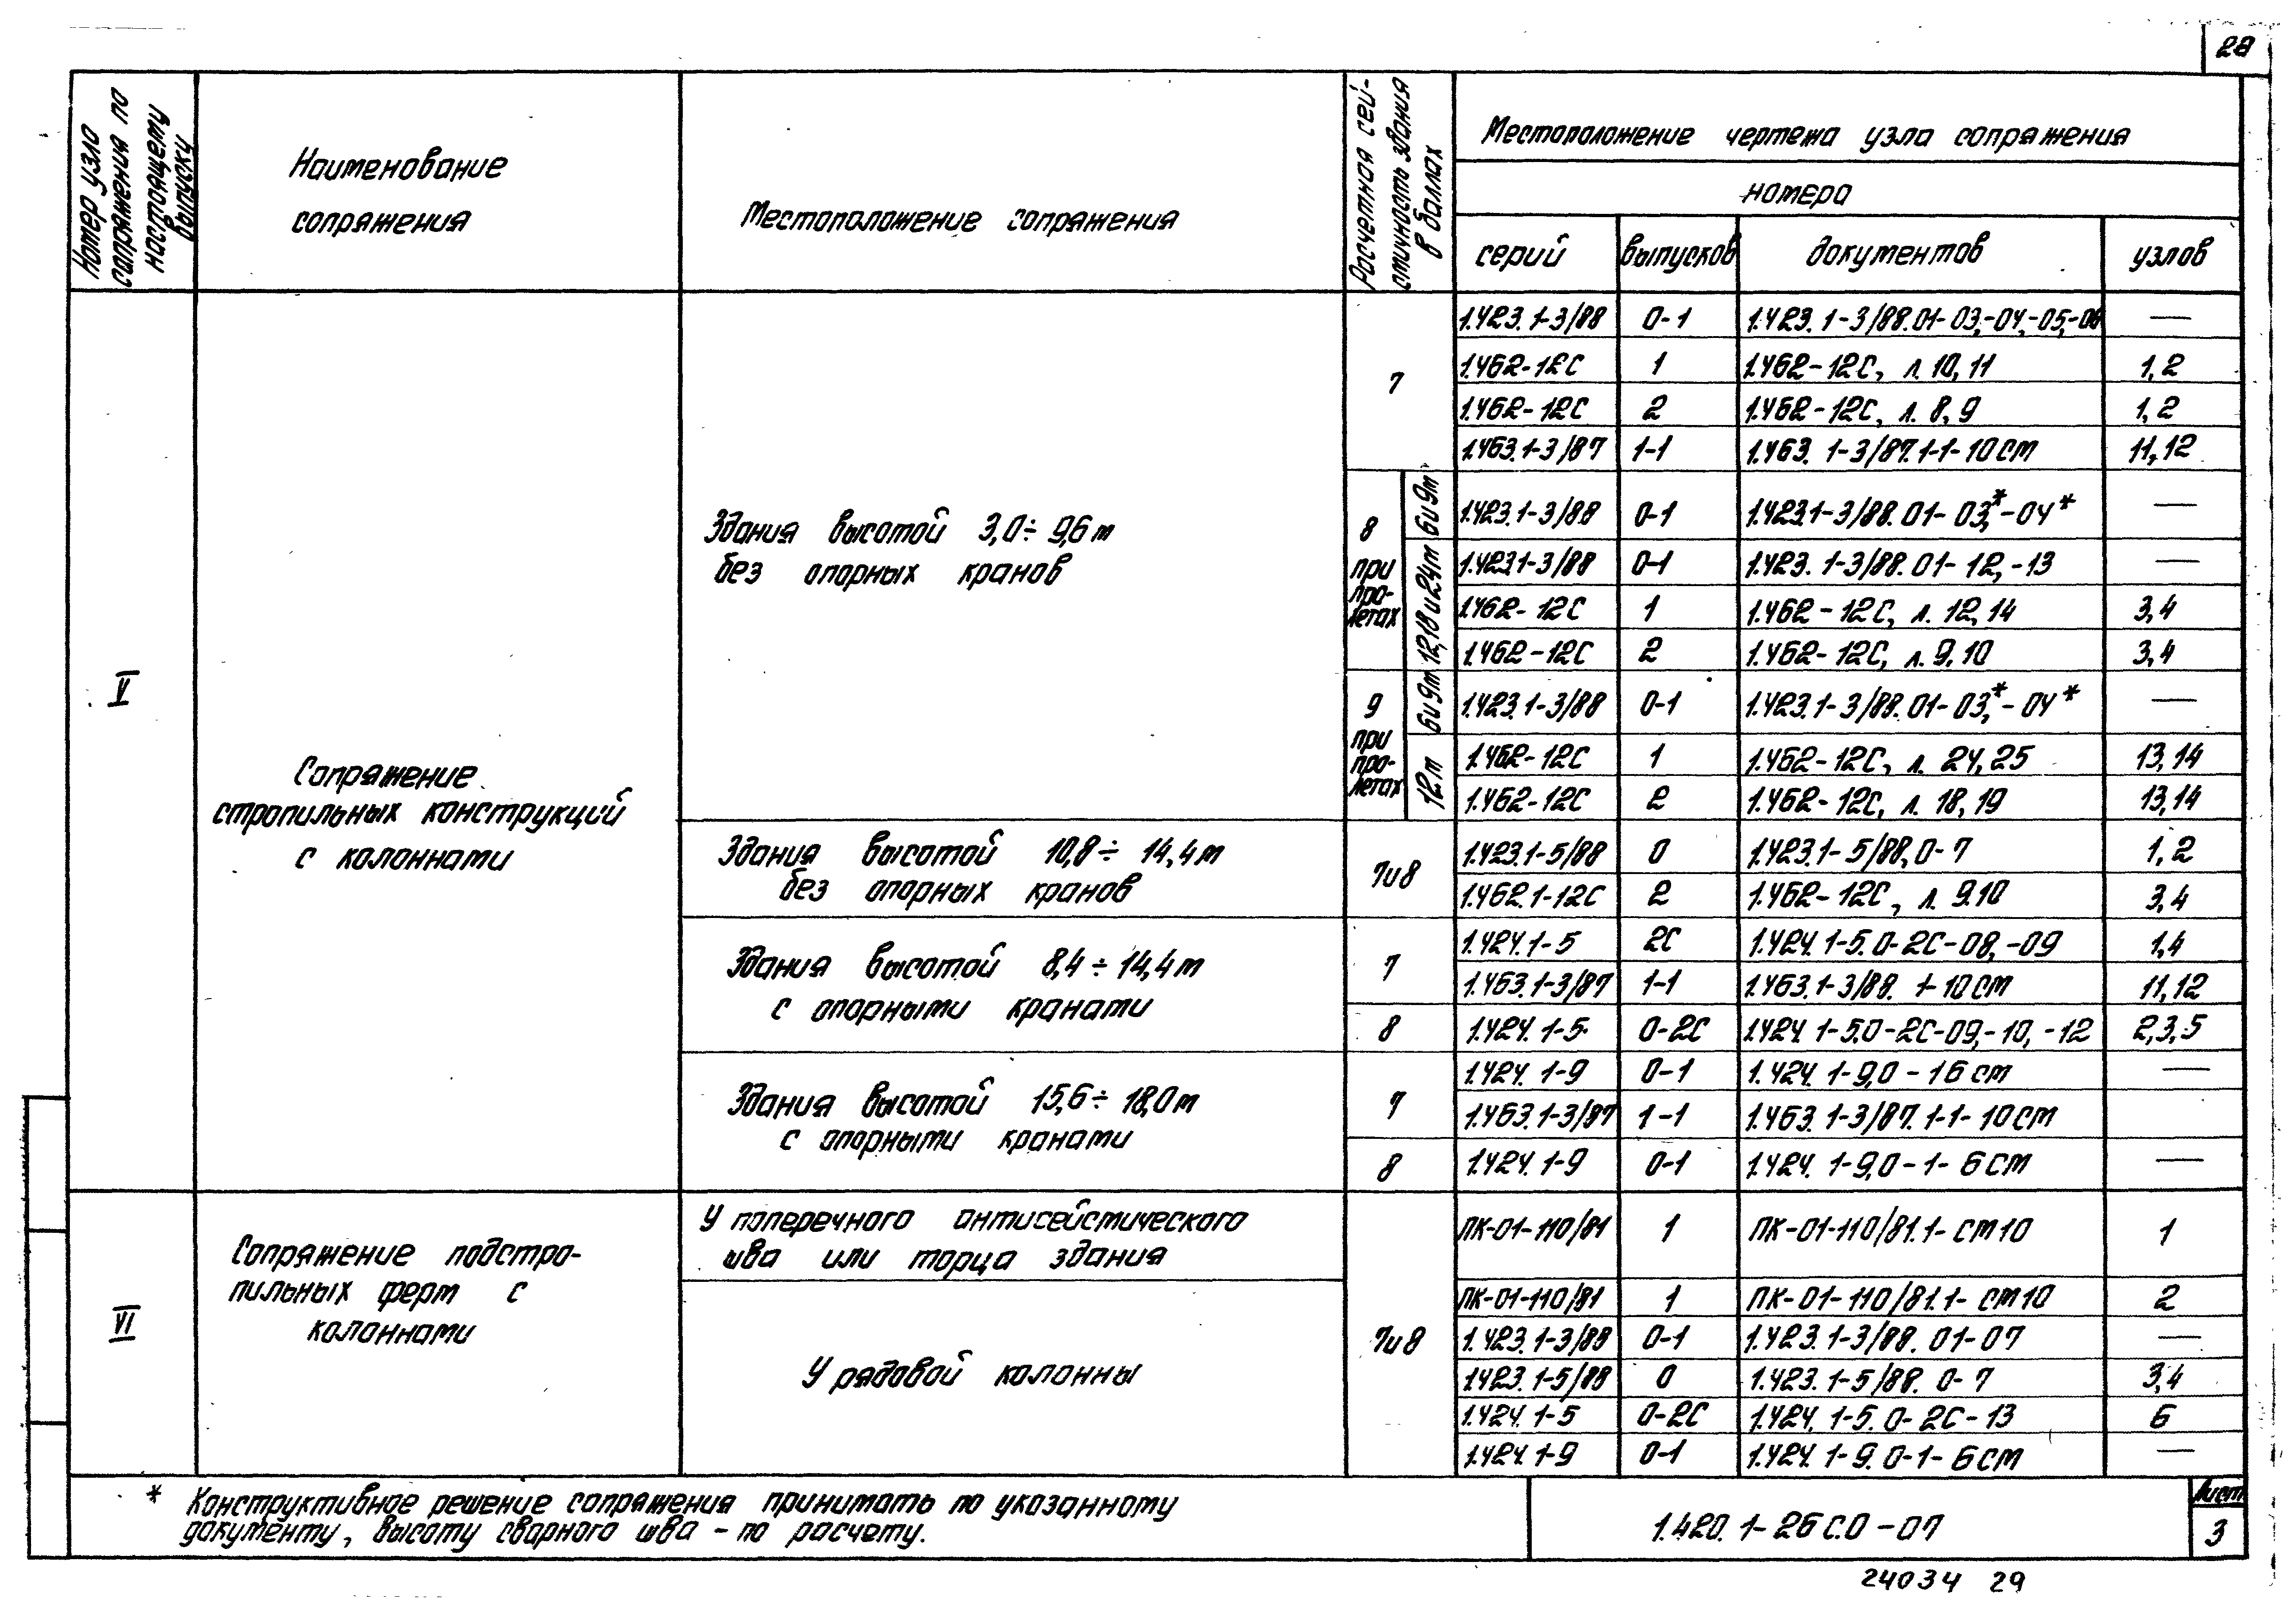 28
Номер узла сопряжения по настоящему выпуску
Наименование
сопряжения
Местоположение сопряжения
Расчетная сей-
смичность здания
в баллах
Местоположение чертежа узла сопряжения
номера
серий выпусков документов узлов
V
Сопряжение
стропильных конструкций
с колоннами
Здания высотой 3,0÷9,6м
без опорных кранов
7
1.423.1-3/88 0-1 1.423.1-3/88.01-03,-04,-05,-06 —
1.462-12С 1 1.462-12С, л. 10,11 1,2
1.462-12С 2 1.462-12С, л. 8,9 1,2
1.463.1-3/87 1-1 1.463.1-3/87.1-1-10СМ 11,12
8
при
про-
летах
6и9м
1.423.1-3/88 0-1 1.423.1-3/88.01-03,*-04* —
12,18и24м
1.423.1-3/88 0-1 1.423.1-3/88.01-12,-13 —
1.462-12С 1 1.462-12С, л. 12,14 3,4
1.462-12С 2 1.462-12С, л. 9,10 3,4
9
при
про-
летах
6и9м
1.423.1-3/88 0-1 1.423.1-3/88.01-03,*-04* —
12м
1.462-12С 1 1.462-12С, л. 24,25 13,14
1.462-12С 2 1.462-12С, л. 18,19 13,14
Здания высотой 10,8÷14,4м
без опорных кранов
7и8
1.423.1-5/88 0 1.423.1-5/88,0-7 1,2
1.462.1-12С 2 1.462-12С, л. 9.10 3,4
Здания высотой 8,4÷14,4м
с опорными кранами
7
1.424.1-5 2С 1.424.1-5.0-2С-08,-09 1,4
1.463.1-3/87 1-1 1.463.1-3/88. 1-10СМ 11,12
8
1.424.1-5 0-2С 1.424.1-5.0-2С-09,-10,-12 2,3,5
Здания высотой 15,6÷18,0м
с опорными кранами
7
1.424.1-9 0-1 1.424.1-9,0-16см —
1.463.1-3/87 1-1 1.463.1-3/87.1-1-10СМ
8
1.424.1-9 0-1 1.424.1-9,0-1-6СМ —
VI
Сопряжение подстро-
пильных ферм с
колоннами
У поперечного антисейсмического
шва или торца здания
7и8
ПК-01-110/81 1 ПК-01-110/81.1-СМ10 1
У рядовой колонны
ПК-01-110/81 1 ПК-01-110/81.1-СМ10 2
1.423.1-3/88 0-1 1.423.1-3/88.01-07 —
1.423.1-5/88 0 1.423.1-5/88.0-7 3,4
1.424.1-5 0-2С 1.424.1-5.0-2С-13 6
1.424.1-9 0-1 1.424.1-9.0-1-6СМ —
* Конструктивное решение сопряжения принимать по указанному
документу, высоту сварного шва - по расчету.
1.420.1-26С.0-07
Лист
3
24034 29